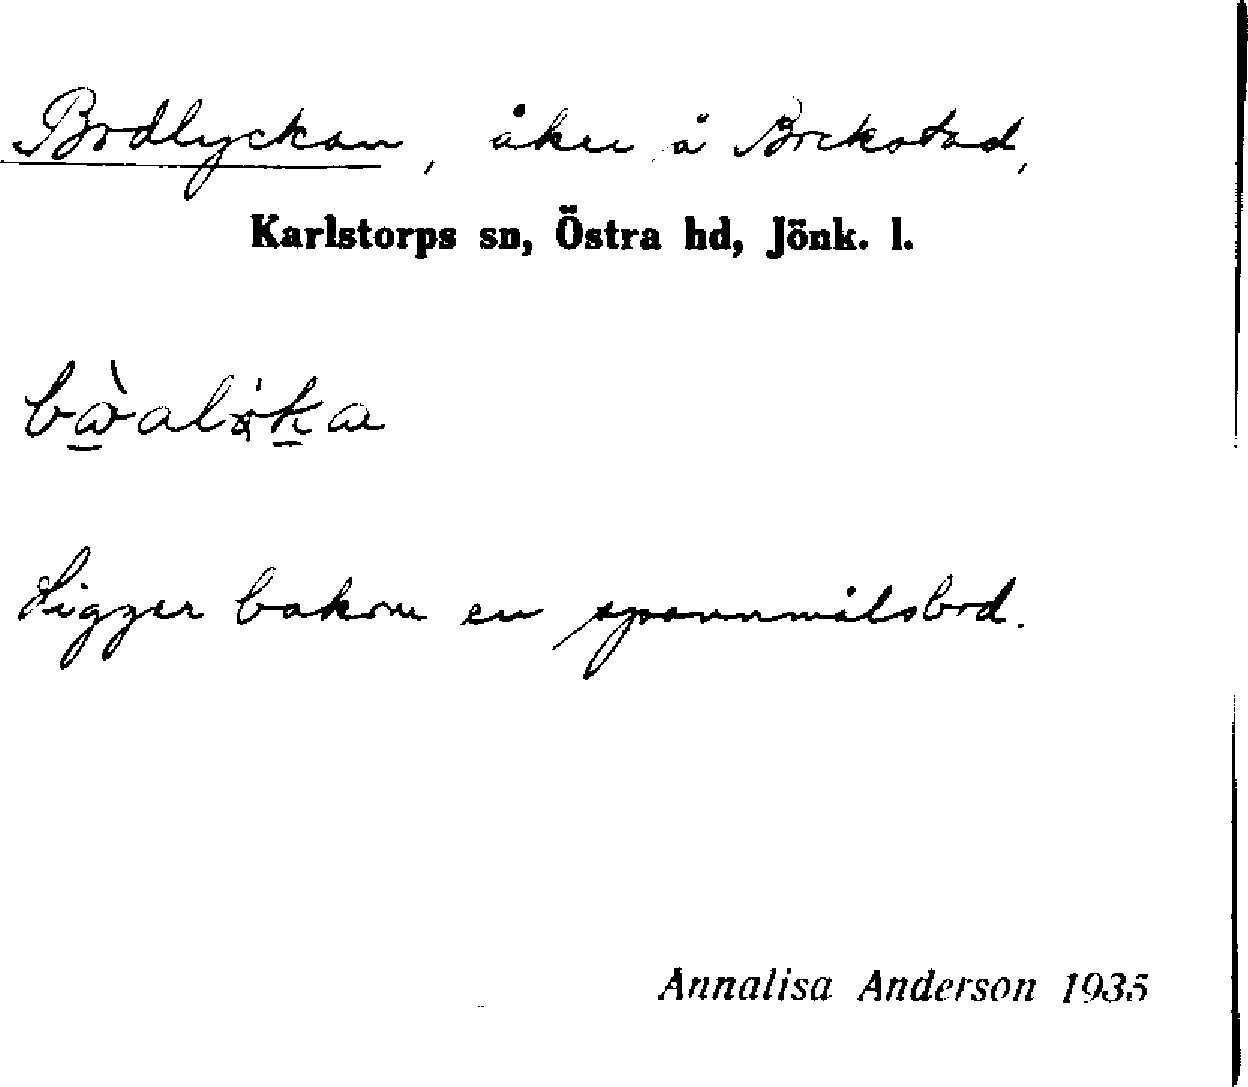 Bodlyckan, åker å Bockstad,
Karlstorps sn, Östra hd, Jönk. l.
Ligger bakom en spannmålsbod.
Annalisa Anderson 1935